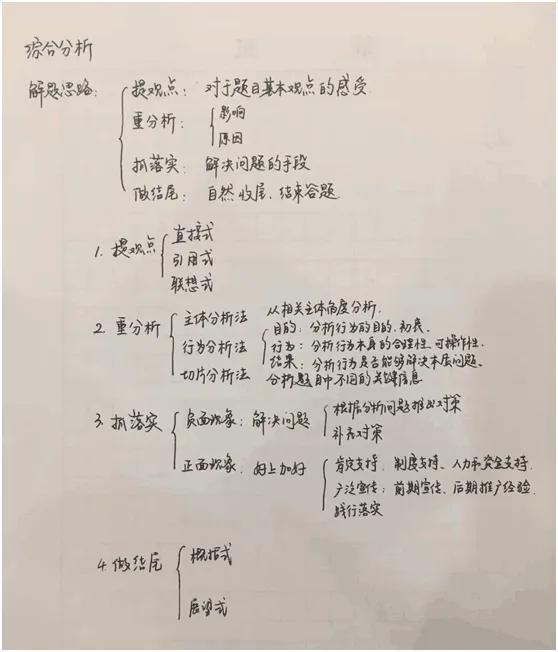 综合分析
解题思路:
提观点: 对于题目基本观点的感受
重分析: 影响
原因
抓落实: 解决问题的手段
做结尾: 自然收尾、结束答题
1. 提观点
直接式
引用式
联想式
2. 重分析
主体分析法 从相关主体角度分析.
行为分析法
目的: 分析行为的目的、初衷.
行为: 分析行为本身的合理性、可操作性.
结果: 分析行为是否能够解决本质问题.
切片分析法 分析题目中不同的关键信息
3. 抓落实
负面现象: 解决问题
根据分析问题推出对策
补充对策
正面现象: 好上加好
肯定支持: 制度支持、人力和资金支持.
广泛宣传: 前期宣传、后期推广经验.
践行落实
4. 做结尾
概括式
展望式